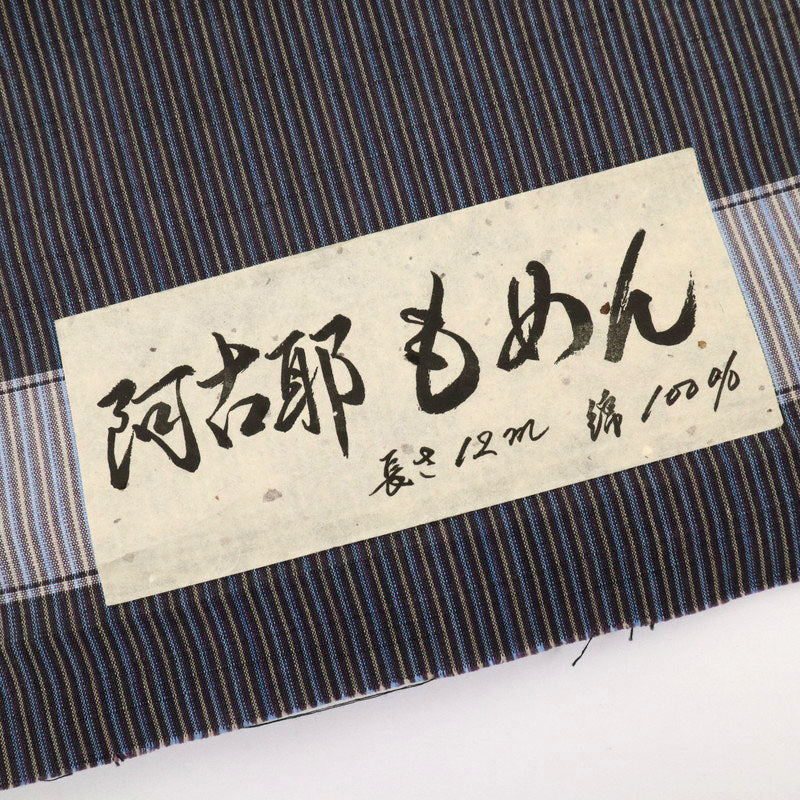 阿古耶もめん
長さ12m 綿100%